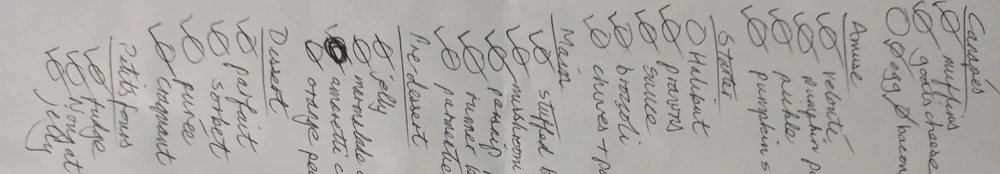 Canapés
muffins
goats cheese
egg bacon
Amuse
velouté
pumpkin
pickle
pumpkin s
Starter
Halibut
prawns
sauce
brocoli
chives + p
Main
stuffed b
mushroom
parsnip
runner b
parmentie
Pre dessert
jelly
marmalade
amaretti c
orange pee
Dessert
parfait
sorbet
purée
Petits fours
fudge
Nougat
jelly